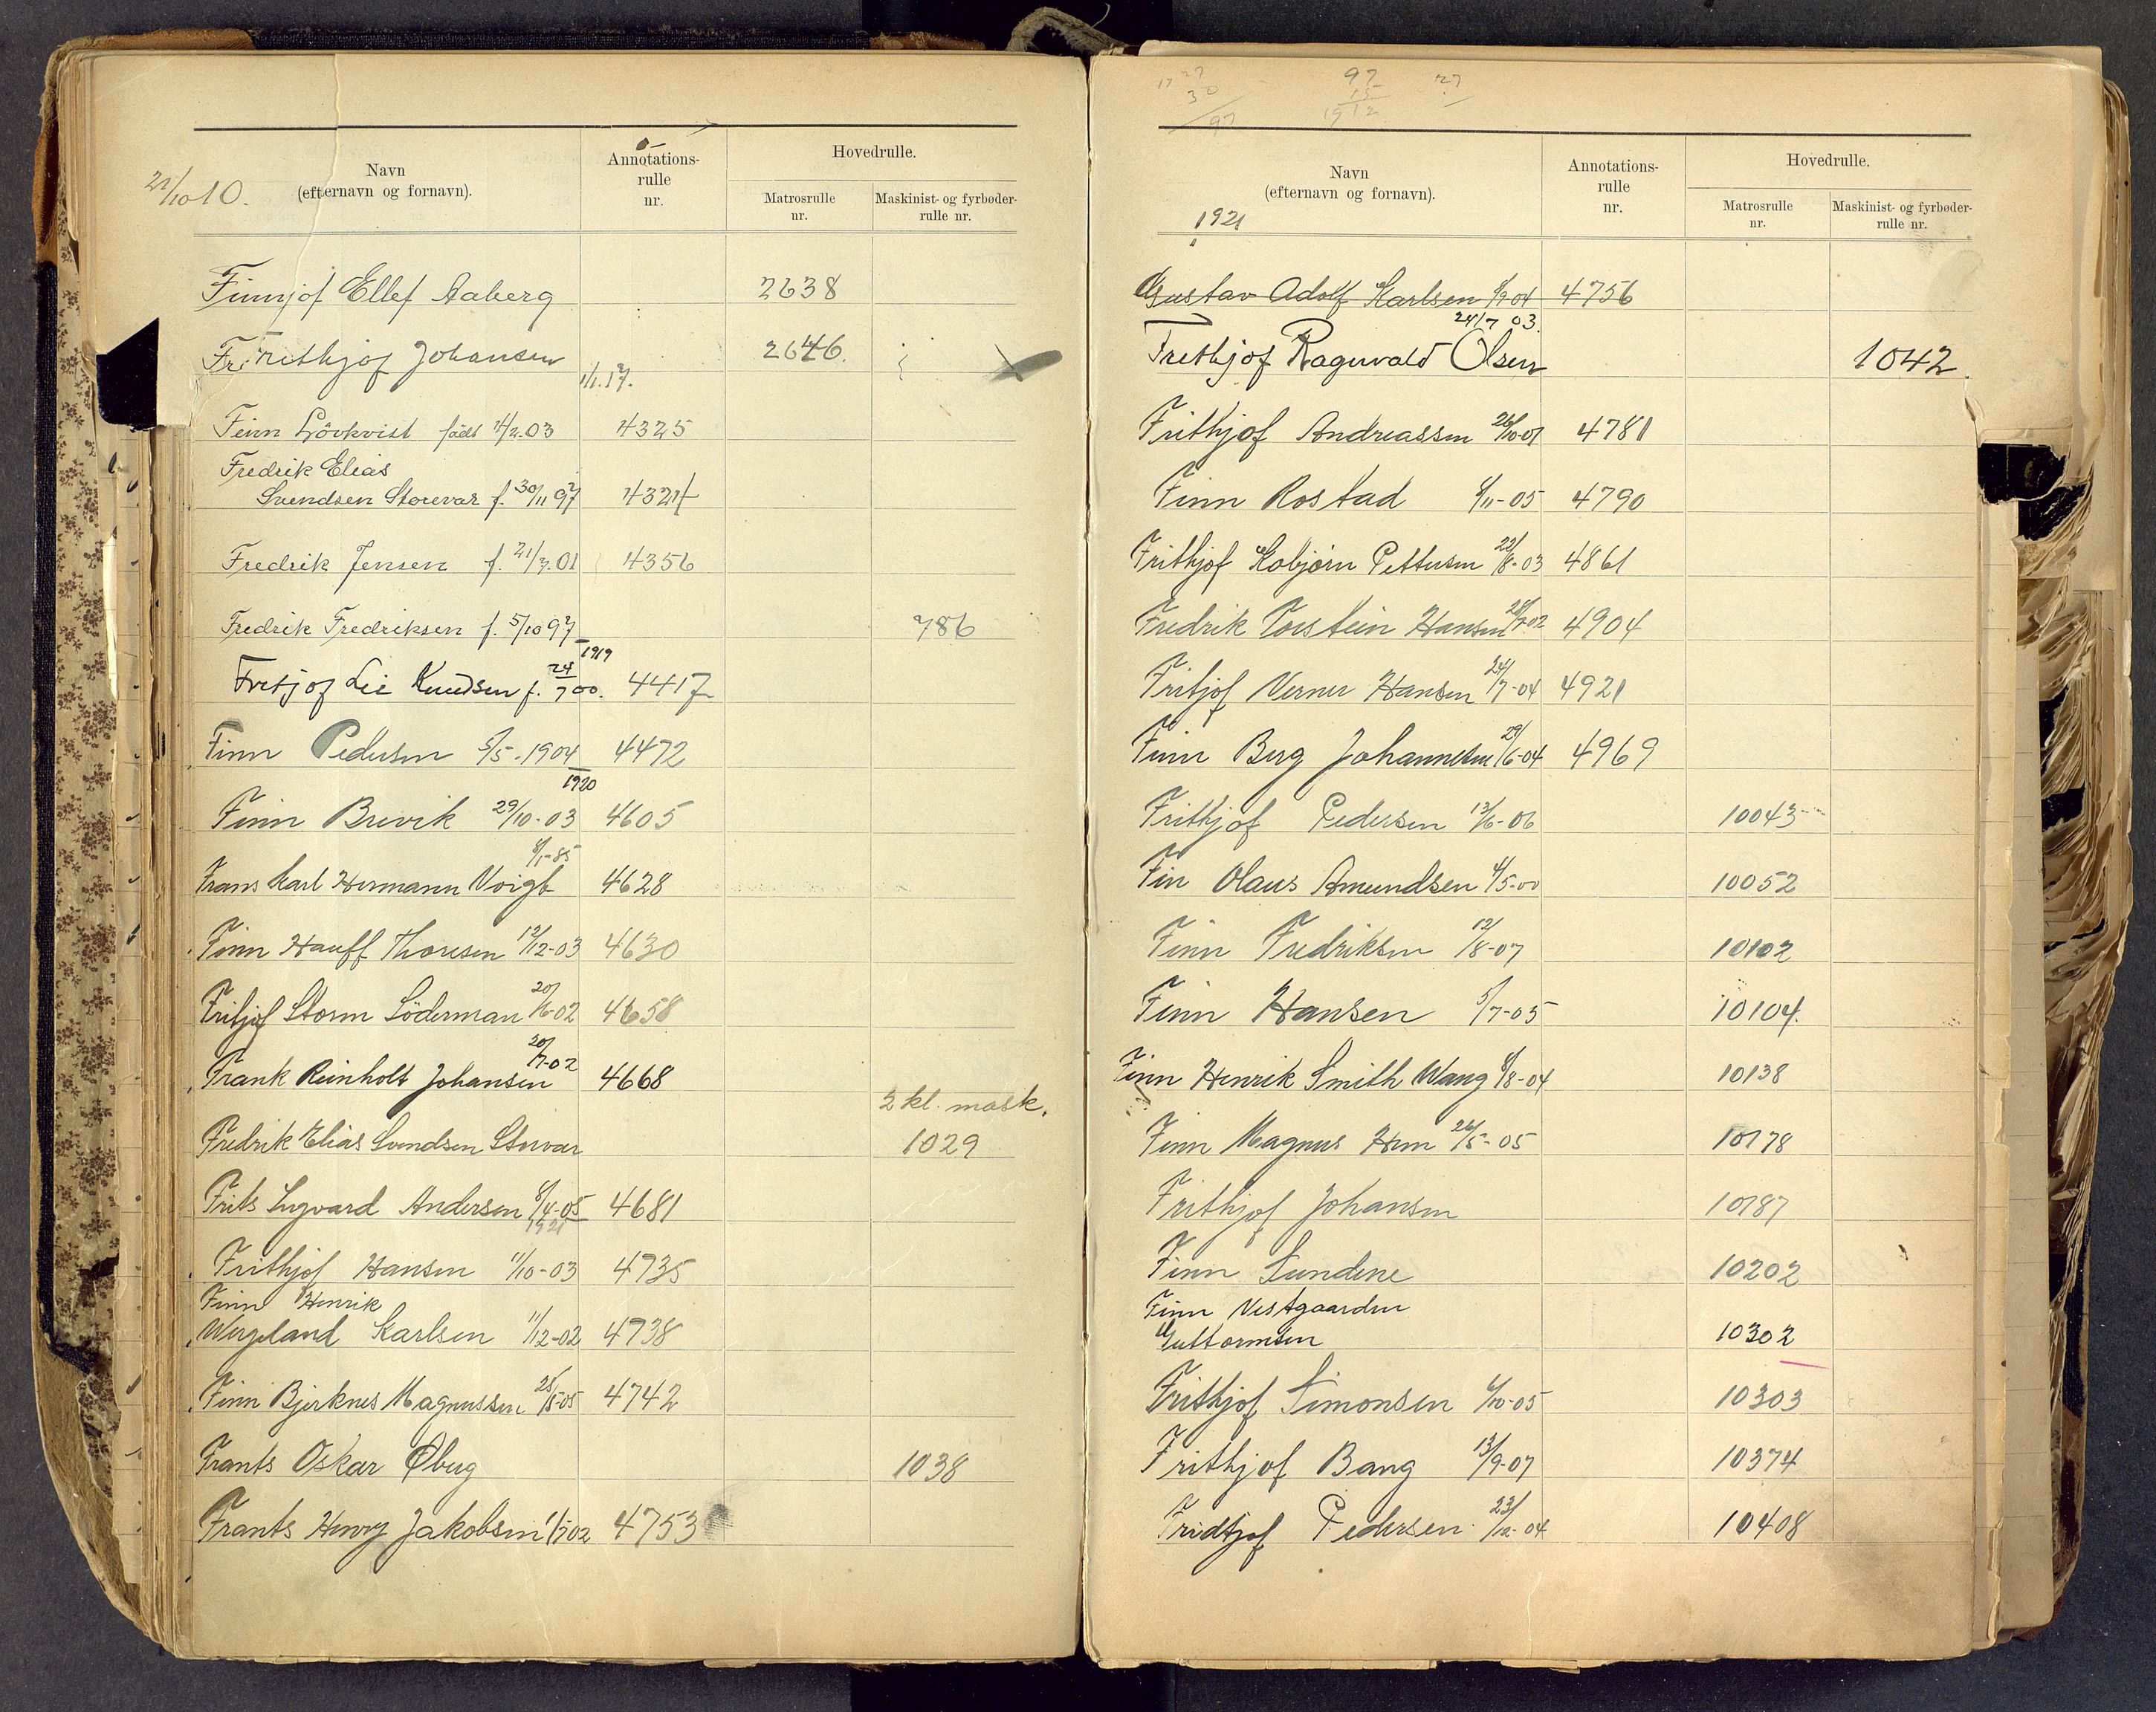 21/10 10.
Navn
(efternavn og fornavn).
Annotations-
rulle
nr.
Hovedrulle.
Matrosrulle
nr.
Maskinist- og fyrbøder-
rulle nr.
Finnjof Ellef Aaberg 2638
Frithjof Johansen 2646.
1/1.17.
Finn Lövkvist født 4/2.03 4325
Fredrik Elias
Svendsen Storevar f. 30/11 97 4324
Fredrik Jensen f. 21/3.01 4356
Fredrik Fredriksen f. 5/10 97 786
1919
Fretjof Lie Knudsen f. 24/7 00. 4417
Finn Pedersen 5/5-1904 4472
1920
Finn Brevik 29/10-03 4605
8/1-85
Frans Karl Hermann Voigt 4628
Finn Hauff Thoresen 12/12-03 4630
Fritjof Storm Söderman 20/6-02 4658
20/7-02
Frank Reinholt Johansen 4668
2 kl. mask.
Fredrik Elias Svendsen Storvar 1029
Frits Ingvard Andersen 8/4-05 4681
1921
Frithjof Hansen 11/10-03 4735
Finn Henrik
Wergeland Karlsen 11/12-02 4738
Finn Bjerknes Magnussen 25/5-05 4742
Frants Oskar Øberg 1038
Frants Henry Jakobsen 1/7 02 4753
97
15
1912
27
Navn
(efternavn og fornavn).
Annotations-
rulle
nr.
Hovedrulle.
Matrosrulle
nr.
Maskinist- og fyrbøder-
rulle nr.
1921
Gustav Adolf Karlsen 4756
24/7 03.
Frethjof Ragnvald Olsen 1042.
Frithjof Andreassen 26/10-01 4781
Finn Rostad 6/11-05 4790
Frithjof Kobjørn Pettersen 22/8-03 4861
Fredrik Torstein Hansen 4904
Fritjof Verner Hansen 24/7-04 4921
Finn Berg Johannesen 29/6-04 4969
Frithjof Pedersen 13/6-06 10043
Fin Olaus Amundsen 4/5-00 10052
Finn Fredriksen 12/8-07 10102
Finn Hansen 5/7-05 10104.
Finn Henrik Smith Wang 8/8-04 10138
Finn Magnus Hem 26/5-05 10178
Frithjof Johansen 10187
Finn Sundene 10202
Finn Vestgaarden
Guttormsen 10302
Frithjof Simonsen 6/10-05 10303
Frithjof Bang 13/9-07 10374
Fridtjof Pedersen 23/12-04 10408